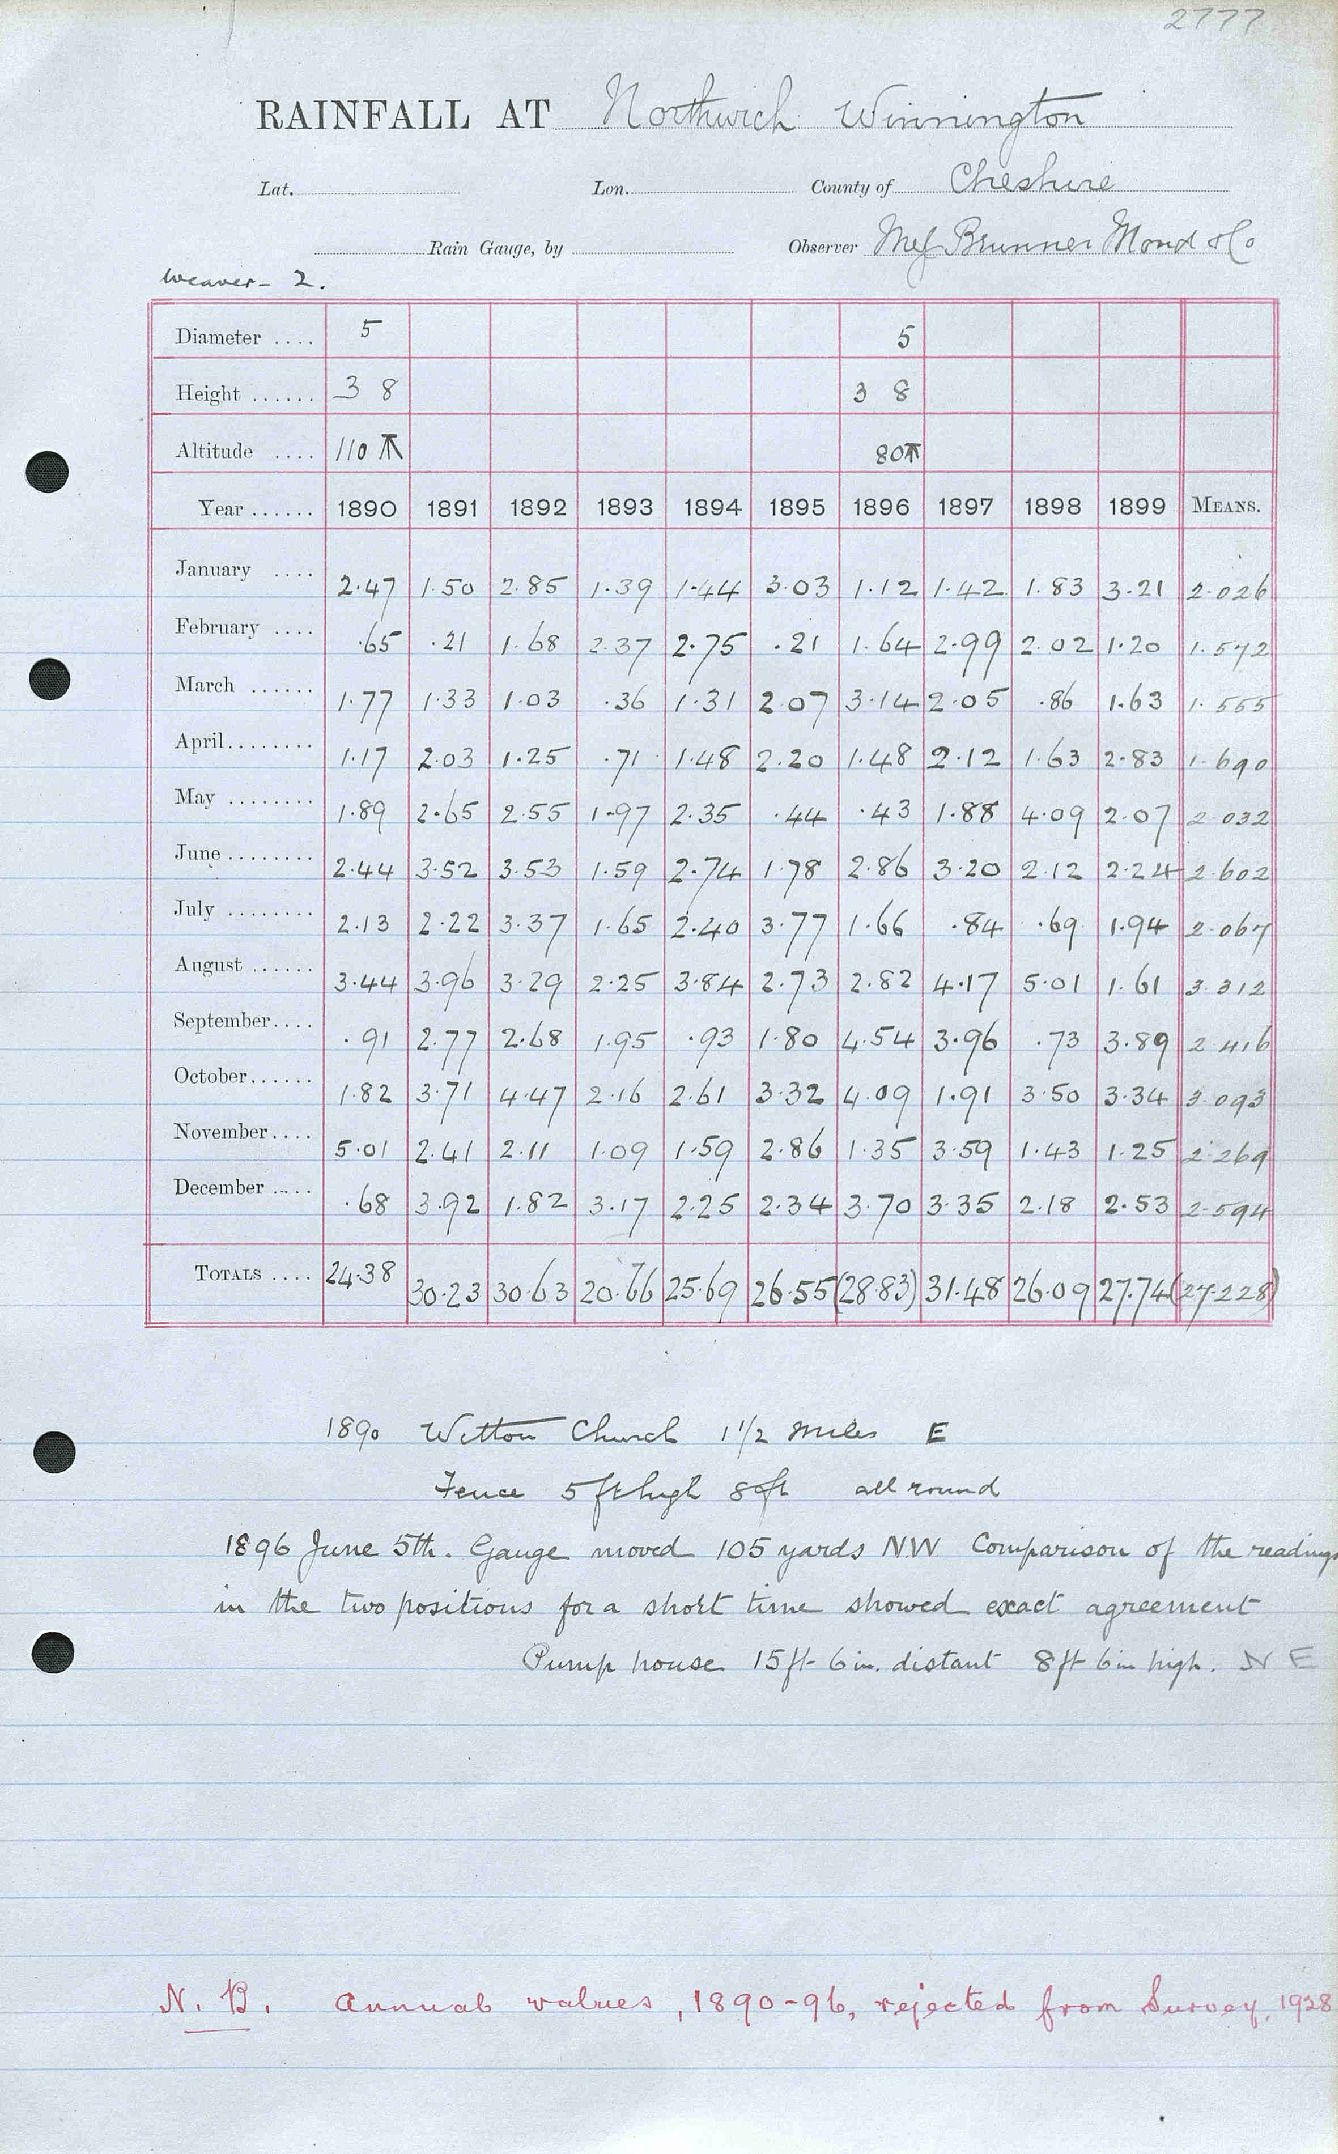 2777
RAINFALL AT Northwich Winnington
Lat. Lon. County of Cheshire
Rain Gauge, by Observer Mes Brunner Mond & Co
Weaver - 2.
Diameter .... 5 5
Height ...... 3 8 3 8
Altitude .... 110 80
Year ...... 1890 1891 1892 1893 1894 1895 1896 1897 1898 1899 MEANS.
January .... 2.47 1.50 2.85 1.39 1.44 3.03 1.12 1.42 1.83 3.21 2.026
February .... .65 .21 1.68 2.37 2.75 .21 1.64 2.99 2.02 1.20 1.572
March ...... 1.77 1.33 1.03 .36 1.31 2.07 3.14 2.05 .86 1.63 1.555
April........ 1.17 2.03 1.25 .71 1.48 2.20 1.48 2.12 1.63 2.83 1.690
May ........ 1.89 2.65 2.55 1.97 2.35 .44 .43 1.88 4.09 2.07 2.032
June ........ 2.44 3.52 3.53 1.59 2.74 1.78 2.86 3.20 2.12 2.24 2.602
July ........ 2.13 2.22 3.37 1.65 2.40 3.77 1.66 .84 .69 1.94 2.067
August ...... 3.44 3.96 3.29 2.25 3.84 2.73 2.82 4.17 5.01 1.61 3.312
September.... .91 2.77 2.68 1.95 .93 1.80 4.54 3.96 .73 3.89 2.416
October...... 1.82 3.71 4.47 2.16 2.61 3.32 4.09 1.91 3.50 3.34 3.093
November.... 5.01 2.41 2.11 1.09 1.59 2.86 1.35 3.59 1.43 1.25 2.269
December .... .68 3.92 1.82 3.17 2.25 2.34 3.70 3.35 2.18 2.53 2.594
TOTALS .... 24.38 30.23 30.63 20.66 25.69 26.55 (28.83) 31.48 26.09 27.74 (27.228)
1890 Witton Church 1 1/2 miles E
Fence 5ft high 8ft all round
1896 June 5th. Gauge moved 105 yards NW Comparison of the readings
in the two positions for a short time showed exact agreement
Pump house 15ft 6in. distant 8ft 6in high. N E
N. B. Annual values, 1890-96, rejected from Survey, 1928